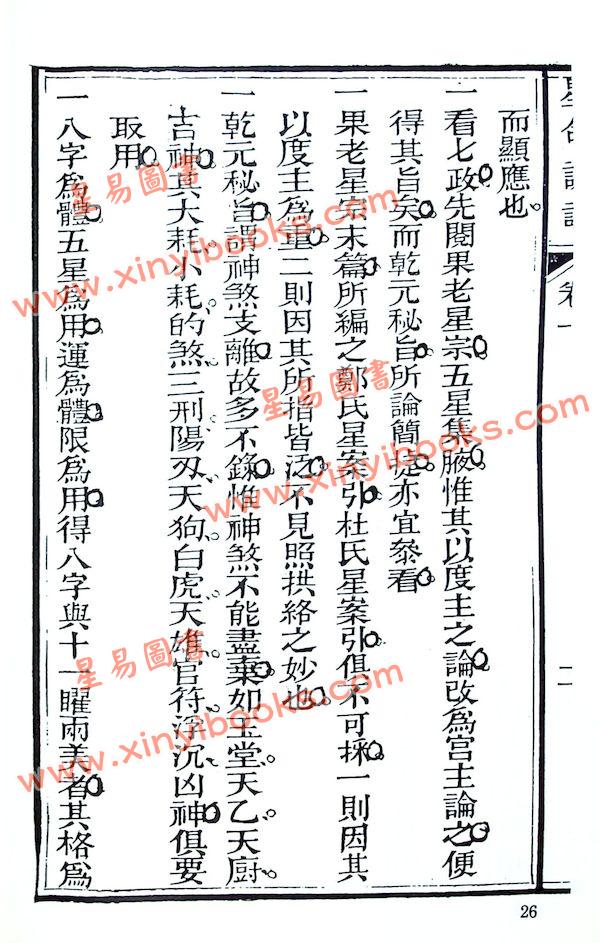 而顯應也。
一看七政先閱果老星宗五星集腋惟其以度主之論改為宮主論之便
得其旨矣而乾元秘旨所論簡捷亦宜叅看。
一果老星宗末篇所編之鄭氏星案引杜氏星案引俱不可採一則因其
以度主為重二則因其所指皆泛不見照拱絡之妙也。
一乾元秘旨謂神煞支離故多不錄惟神煞不能盡棄如玉堂天乙天廚
吉神與大耗小耗的煞三刑陽刃天狗白虎天雄官符浮沉凶神俱要
取用
一八字為體五星為用運為體限為用得八字與十一曜兩美者其格為
卷一
二
26
星易圖書
www.xinyibooks.com
星易圖書
www.xinyibooks.com
星易圖書
www.xinyibooks.com